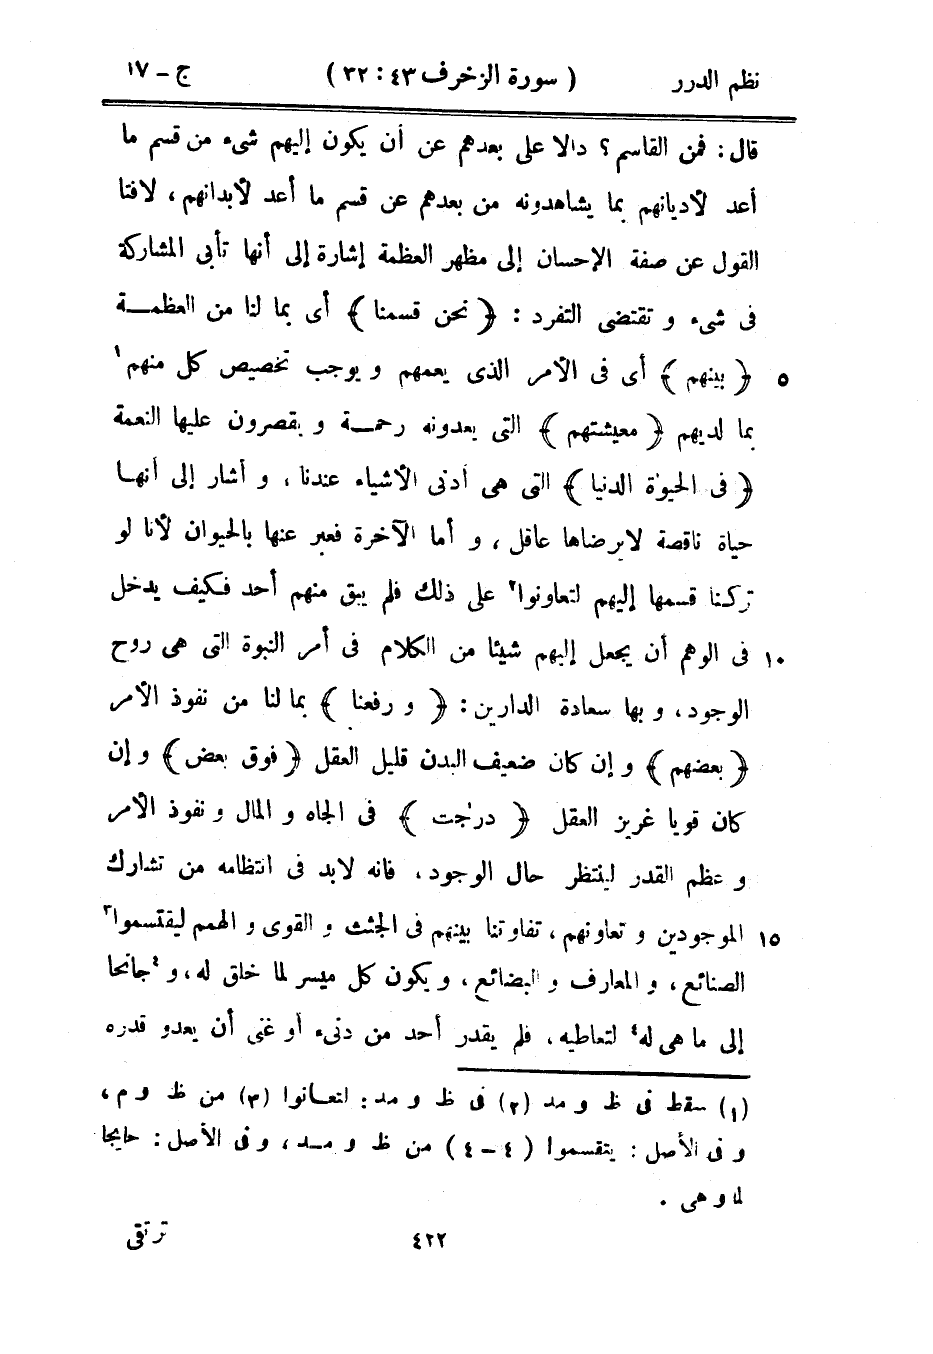 نظم الدرر ( سورة الزخرف ٤٣ : ٣٢ ) ج – ١٧
قال : فمن القاسم ؟ دالا على بعدهم عن أن يكون إليهم شىء من قسم ما
أعد لأديانهم بما يشاهدونه من بعدهم عن قسم ما أعد لأبدانهم ، لافتا
القول عن صفة الإحسان إلى مظهر العظمة إشارة إلى أنها تأبى المشاركة
فى شىء و تقتضى التفرد : ﴿ نحن قسمنا ﴾ أى بما لنا من العظمـــة
٥ ﴿ بينهم ﴾ أى فى الأمر الذى يعمهم و يوجب تخصيص كل منهم١
بما لديهم ﴿ معيشتهم ﴾ التى يعدونه رحمـــة و يقصرون عليها النعمة
﴿ فى الحيوٰة الدنيا ﴾ التى هى أدنى الأشياء عندنا ، و أشار إلى أنهـا
حياة ناقصة لايرضاها عاقل ، و أما الآخرة فعبر عنها بالحيوان لأنا لو
تركنا قسمها إليهم لتعاونوا٢ على ذلك فلم يبق منهم أحد فكيف يدخل
١٠ فى الوهم أن يجعل إليهم شيئا من الكلام فى أمر النبوة التى هى روح
الوجود ، و بها سعادة الدارين : ﴿ و رفعنا ﴾ بما لنا من نفوذ الأمر
﴿ بعضهم ﴾ و إن كان ضعيف البدن قليل العقل ﴿ فوق بعض ﴾ و إن
كان قويا غريز العقل ﴿ درجٰت ﴾ فى الجاه و المال و نفوذ الأمر
و عظم القدر لينتظر حال الوجود ، فانه لابد فى انتظامه من تشارك
١٥ الموجودين و تعاونهم ، تفاوتنا بينهم فى الجثث و القوى و الهمم ليقتسموا٣
الصنائع ، و المعارف و البضائع ، و يكون كل ميسر لما خلق له ، و ٤جانحا
إلى ما هى له٤ لتعاطيه ، فلم يقدر أحد من دنىء أو غنى أن يعدو قدره
(١) سقط فى ظ و مد (٢) فى ظ و مد : لتعـانوا (٣) من ظ و م ،
و فى الأصل : يتقسموا ( ٤ – ٤ ) من ظ و مـد ، و فى الأصل : حايجا
لما و هى .
٤٢٢ ترتقى